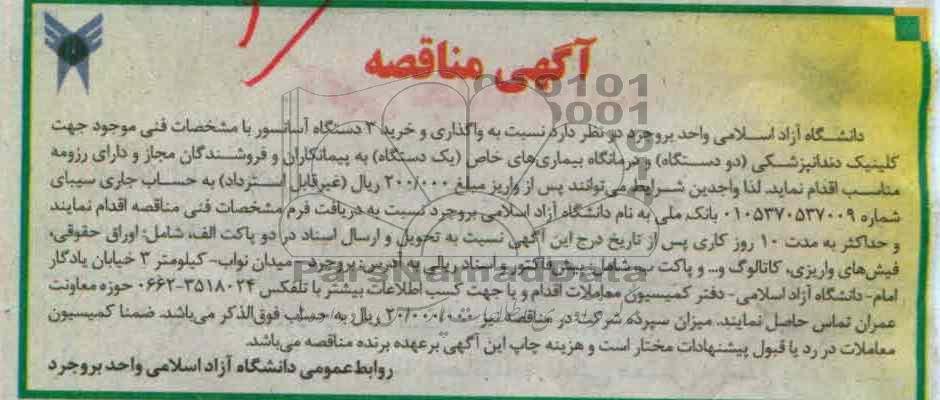 آگهی مناقصه
دانشگاه آزاد اسلامی واحد بروجرد در نظر دارد نسبت به واگذاری و خرید ۳ دستگاه آسانسور با مشخصات فنی موجود جهت
کلینیک دندانپزشکی (دو دستگاه) و درمانگاه بیماری‌های خاص (یک دستگاه) به پیمانکاران و فروشندگان مجاز و دارای رزومه
مناسب اقدام نماید. لذا واجدین شرایط می‌توانند پس از واریز مبلغ ۲۰۰/۰۰۰ ریال (غیرقابل استرداد) به حساب جاری سیبای
شماره ۰۱۰۵۳۷۰۵۳۷۰۰۹ بانک ملی به نام دانشگاه آزاد اسلامی بروجرد نسبت به دریافت فرم مشخصات فنی مناقصه اقدام نمایند
و حداکثر به مدت ۱۰ روز کاری پس از تاریخ درج این آگهی نسبت به تحویل و ارسال اسناد در دو پاکت الف، شامل: اوراق حقوقی،
فیش‌های واریزی، کاتالوگ و... و پاکت ب، شامل: پیش فاکتور و اسناد ریالی به آدرس: بروجرد - میدان نواب- کیلومتر ۳ خیابان یادگار
امام- دانشگاه آزاد اسلامی- دفتر کمیسیون معاملات اقدام و یا جهت کسب اطلاعات بیشتر با تلفکس ۳۵۱۸۰۲۴-۰۶۶۲ حوزه معاونت
عمران تماس حاصل نمایند. میزان سپرده شرکت در مناقصه نیز ۲۰/۰۰۰/۰۰۰ ریال به حساب فوق‌الذکر می‌باشد. ضمنا کمیسیون
معاملات در رد یا قبول پیشنهادات مختار است و هزینه چاپ این آگهی برعهده برنده مناقصه می‌باشد.
روابط عمومی دانشگاه آزاد اسلامی واحد بروجرد
ParsNamadData